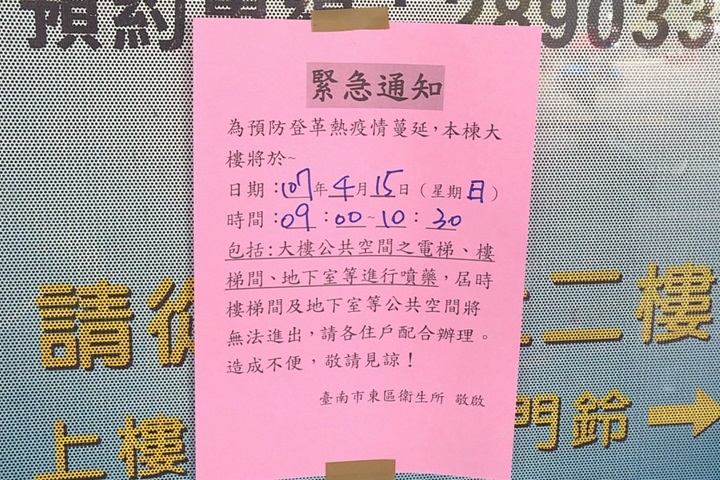 預約
289033
緊急通知
為預防登革熱疫情蔓延,本棟大
樓將於~
日期:107年4月15日(星期日)
時間:09:00~10:30
包括:大樓公共空間之電梯、樓
梯間、地下室等進行噴藥,屆時
樓梯間及地下室等公共空間將
無法進出,請各住戶配合辦理。
造成不便,敬請見諒!
臺南市東區衛生所 敬啟
請從 二樓
上樓 門鈴→